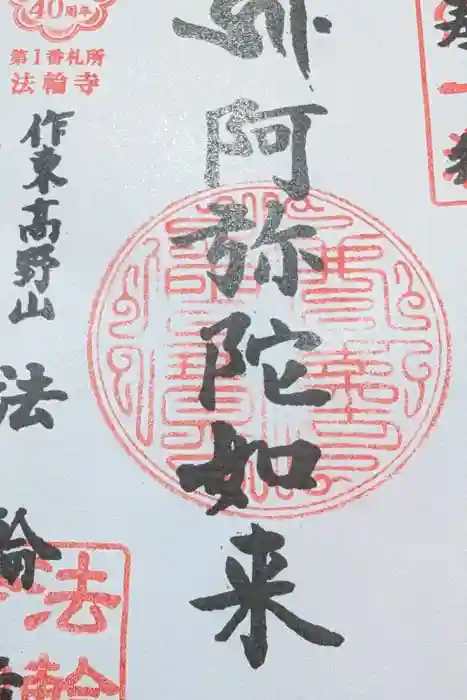 第一番
阿弥陀如来
40周年
第1番札所
法輪寺
作東高野山
法輪寺
法輪